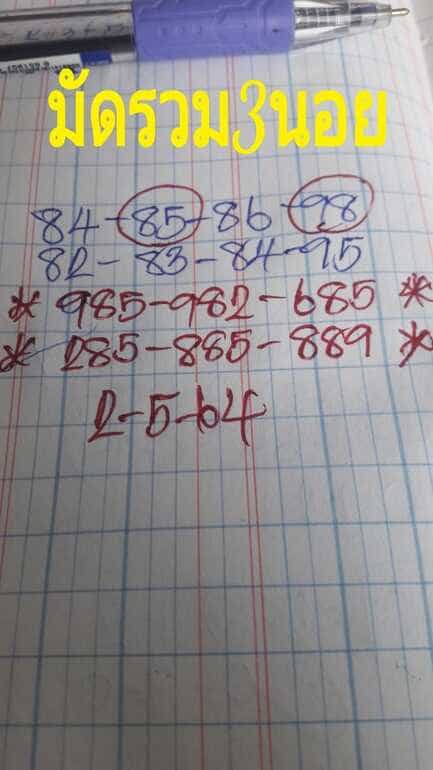 มัดรวม3นอย
84-85-86-98
82-83-84-95
* 985-982-685 *
* 285-885-889 *
2-5-64